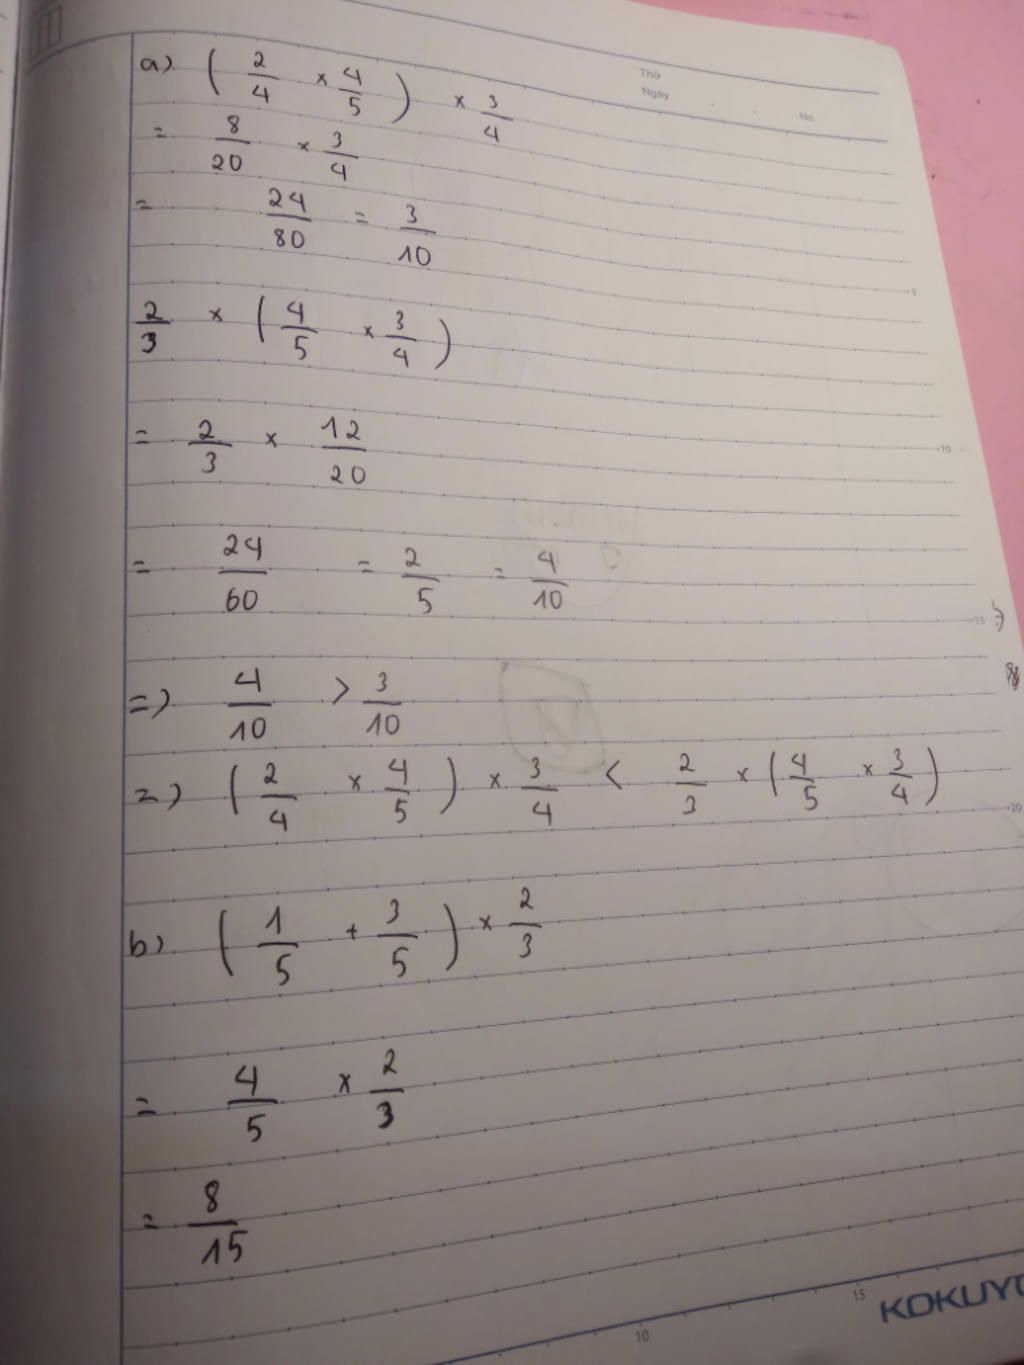 Thứ
Ngày
No.
a) ( 2/4 × 4/5 ) × 3/4
= 8/20 × 3/4
= 24/80 = 3/10
5
2/3 × ( 4/5 × 3/4 )
= 2/3 × 12/20
10
= 24/60 = 2/5 = 4/10
15
=) 4/10 > 3/10
=) ( 2/4 × 4/5 ) × 3/4 < 2/3 × ( 4/5 × 3/4 )
20
b) ( 1/5 + 3/5 ) × 2/3
= 4/5 × 2/3
= 8/15
10 15 KOKUYO